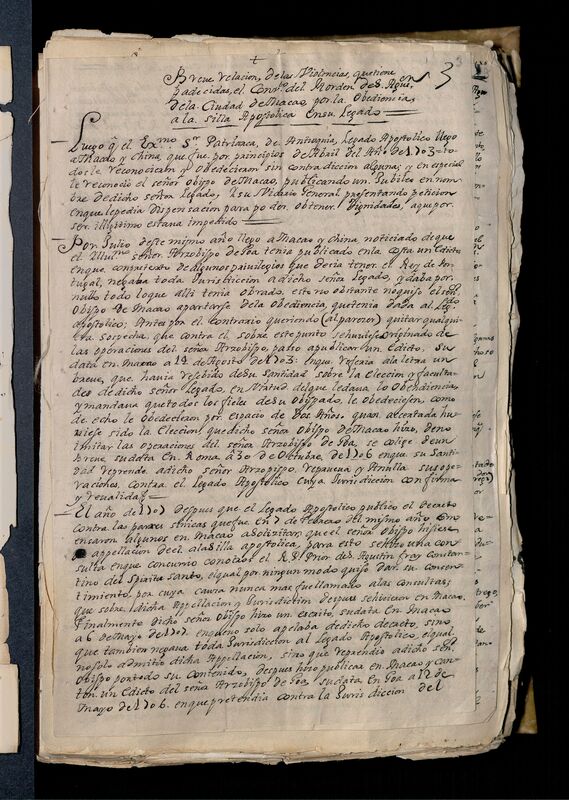 Breve relacion, de las Violencias, que tiene
padecidas, el Convto. del Horden de S. Agus.en
de la Ciudad de Macao, por la Obediencia,
a la Silla Apostolica en su Legado
3
Luego q̃ el Exmo. Sr. Patriarca, de Antioquia, Legado Apostolico llego
a Macao y China, que fue por principios de Abril del Año de 1703 to-
dos le reconocieron y Obedecieron sin contradiccion alguna; y en especial
le reconocio el señor obispo de Macao, publicando un Jubileo en nom-
bre de dicho señor Legado, y su Vicario General presentando peticion
en que le pedia dispensacion para poder obtener Dignidades, aque por
ser illigitimo estava impedido
Por Julio deste mismo año llego a Macao y China, noticia de que
el Illmo. señor Arzobispo de Goa tenia publicado en la costa un Edicto
en que con pretexto de algunos privilegios que decia tener el Rey de Por-
tugal, negava toda Jurisdiccion a dicho señor Legado, y dava por
nulo todo lo que alli tenia obrado, esto no obstante no quiso el señor
Obispo de Macao apartarse de la Obediencia que tenia dada al Legdo.
apostolico; Antes por el contrario queriendo (al parecer) quitar qualqui-
era sospecha, que contra el sobre este punto se huviese originado de
las operaciones del señor Arzobispo, passo a publicar un Edicto, su
data en Macao a 14 de Agosto de 1703: en que referia a la letra un
breve, que havia resebido de su Santidad sobre la Eleccion y faculta-
des de dicho señor Legado, en virtud del que le dava la Obendiencia,
y mandava que todos los fieles de su Obispado, le obedeciesen, como
de echo le obedecieron por espacio de Dos Años. quan accertada hu-
viese sido la Eleccion, que dicho señor Obispo de Macao hizo, de no
imitar las operaciones del señor Arzobispo de Goa, se colige de un
Breve, su data en Roma a 30 de Octubre, de 1706 en que su Santi-
dad reprende a dicho señor Arzopispo, reprueva y Anulla sus ope-
raciones, contra el Legado Apostolico cuya Jurisdiccion confirma
y revalida
El año de 1707 despues que el Legado Apostolico publico el Decreto
contra las que fue en 7 de Febrero del mismo año, Com-
ensaron algunos en Macao a solizitar que el señor obispo hisiese
appellacion del a la Silla apostolica, para esto se hizo una con-
sulta en que concurrio con otros el R. P. Prior de S. Agustin fray Constan-
tino del Spiritu Santo, el qual por ningun modo quiso dar su Concen-
timiento, por cuya causa nunca mas fue llamado a las consultas,
que sobre dicha Appellacion, y Jurisdiction despues se hisieron en Macao.
Finalmente dicho señor Obispo hizo un escrito, su data en Macao
a 6 de Mayo de 1707. en que no solo apelaba de dicho decreto, sino
que tambien negava toda Jurisdiccion al Legado Apostolico, el qual
no solo admitio dicha Appellacion, sino que reprendio a dicho señ.
Obispo por todo su contenido, despues hizo publicar en Macao y Can-
ton un Edicto del señor Arzobispo de Goa, su data en Goa a 12 de
mayo de 1706. en que pretendia contra la Juris diccion del